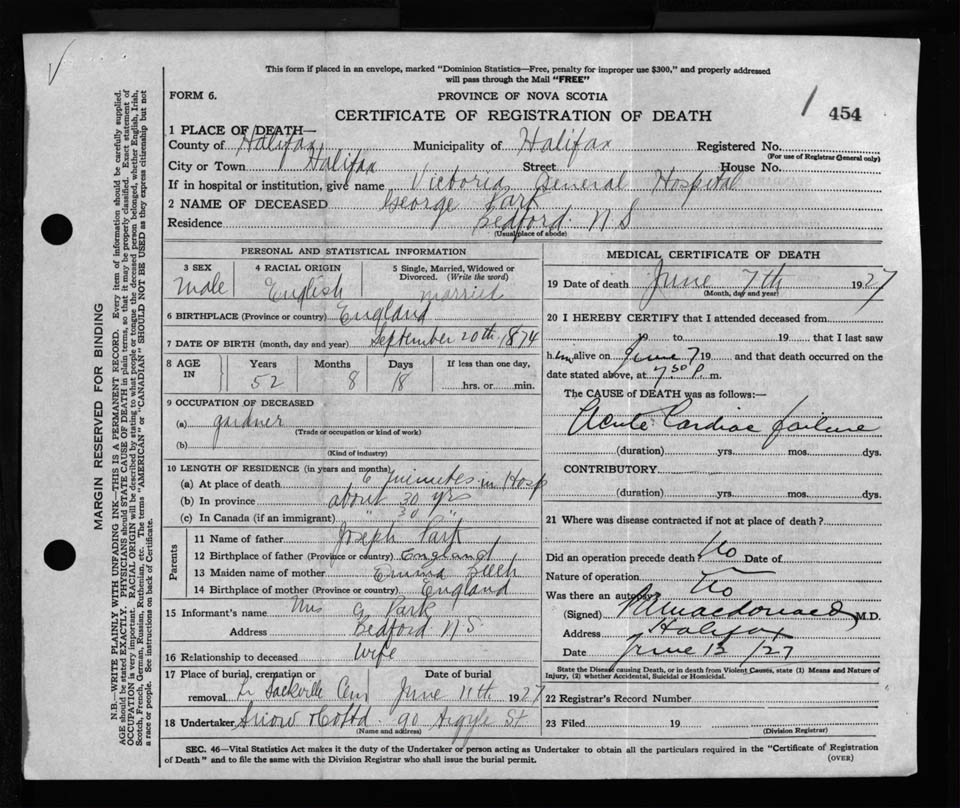 This form if placed in an envelope, marked "Dominion Statistics—Free, penalty for improper use $300," and properly addressed
will pass through the Mail "FREE"
FORM 6.
PROVINCE OF NOVA SCOTIA
454
CERTIFICATE OF REGISTRATION OF DEATH
1 PLACE OF DEATH—
County of Halifax Municipality of Halifax Registered No.
(For use of Registrar General only)
City or Town Halifax Street House No.
If in hospital or institution, give name Victoria General Hospital
2 NAME OF DECEASED George Park
Residence Bedford N S
(Usual place of abode)
PERSONAL AND STATISTICAL INFORMATION
3 SEX Male
4 RACIAL ORIGIN English
5 Single, Married, Widowed or
Divorced. (Write the word)
married
6 BIRTHPLACE (Province or country) England
7 DATE OF BIRTH (month, day and year) September 20th 1874
8 AGE IN
Years Months Days If less than one day,
52 8 18 hrs. or min.
9 OCCUPATION OF DECEASED
(a) gardner
(Trade or occupation or kind of work)
(b)
(Kind of industry)
10 LENGTH OF RESIDENCE (in years and months)
(a) At place of death 6 minutes in Hosp
(b) In province about 30 yrs
(c) In Canada (if an immigrant) " 30 "
Parents
11 Name of father Joseph Park
12 Birthplace of father (Province or country) England
13 Maiden name of mother Emma
14 Birthplace of mother (Province or country) England
15 Informant's name Mrs G Park
Address Bedford N S
16 Relationship to deceased Wife
17 Place of burial, cremation or Date of burial
removal Sackville Cem June 11th 1927
18 Undertaker Snow & Co Ltd 90 Argyle St
(Name and address)
MEDICAL CERTIFICATE OF DEATH
19 Date of death June 7th 1927
(Month, day and year)
20 I HEREBY CERTIFY that I attended deceased from
19 to 19 that I last saw
him alive on June 7 19 and that death occurred on the
date stated above, at 7 30 P. m.
The CAUSE OF DEATH was as follows:—
Acute Cardiac failure
(duration) yrs. mos. dys.
CONTRIBUTORY
(duration) yrs. mos. dys.
21 Where was disease contracted if not at place of death?
Did an operation precede death? No Date of
Nature of operation
Was there an autopsy No
(Signed) Macdonald M.D.
Address Halifax
Date June 12 /27
State the Disease causing Death, or in death from Violent Causes, state (1) Means and Nature of
Injury, (2) whether Accidental, Suicidal or Homicidal.
22 Registrar's Record Number
23 Filed 19
(Division Registrar)
SEC. 46—Vital Statistics Act makes it the duty of the Undertaker or person acting as Undertaker to obtain all the particulars required in the "Certificate of Registration
of Death" and to file the same with the Division Registrar who shall issue the burial permit.
(OVER)
MARGIN RESERVED FOR BINDING
N.B.—WRITE PLAINLY WITH UNFADING INK—THIS IS A PERMANENT RECORD. Every item of information should be carefully supplied.
AGE should be stated EXACTLY. PHYSICIANS should STATE CAUSE OF DEATH in plain terms, so that it may be properly classified. Exact statement of
OCCUPATION is very important. RACIAL ORIGIN will be described by stating to what people or tongue the deceased person belonged, whether English, Irish,
Scotch, French, German, Russian, Ruthenian, etc. The terms "AMERICAN" or "CANADIAN" SHOULD NOT BE USED as they express citizenship but not
a race or people. See instructions on back of Certificate.